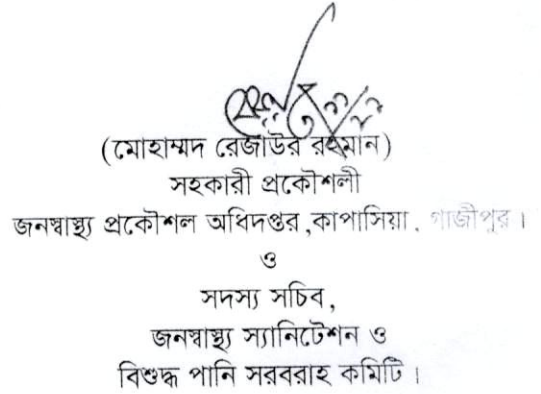 (মোহাম্মদ রেজাউর রহমান)
সহকারী প্রকৌশলী
জনস্বাস্থ্য প্রকৌশল অধিদপ্তর,কাপাসিয়া, গাজীপুর।
ও
সদস্য সচিব,
জনস্বাস্থ্য স্যানিটেশন ও
বিশুদ্ধ পানি সরবরাহ কমিটি।